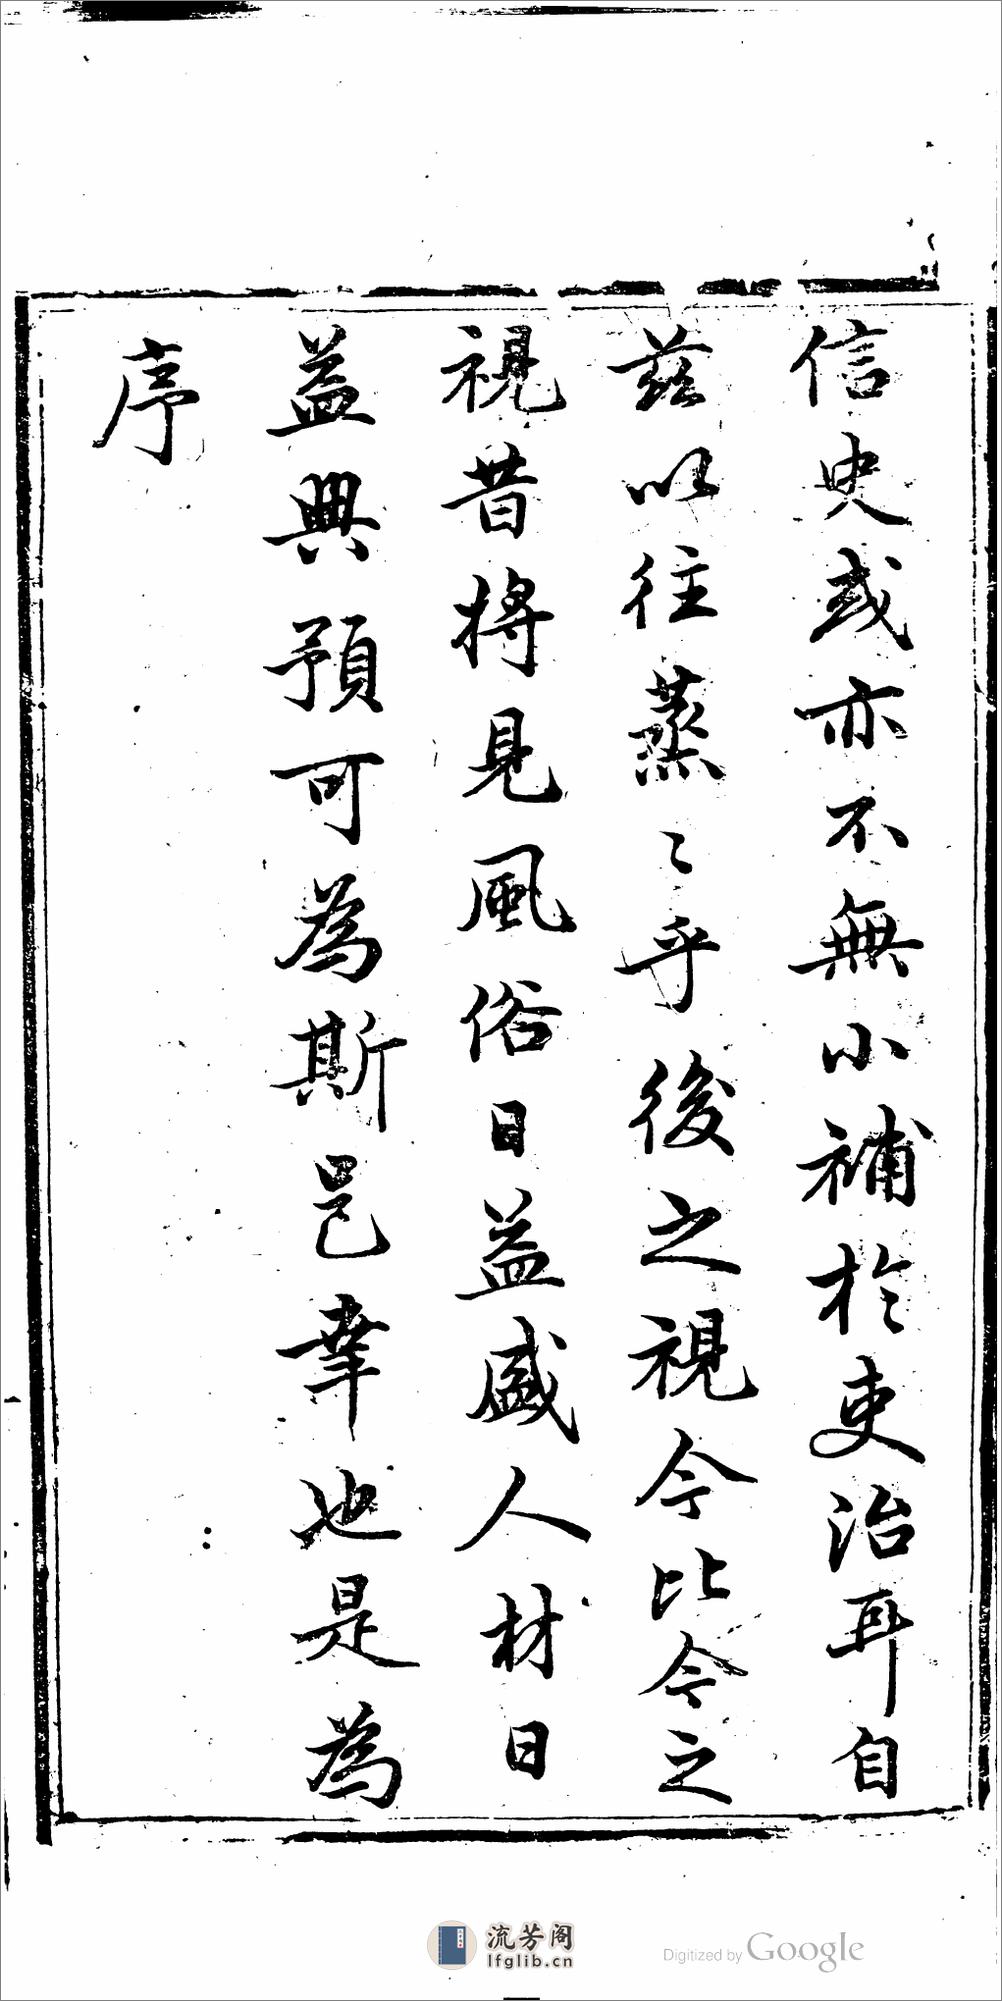 信史或亦不無小補於吏治耳自
茲以往蒸〻乎後之視今比今之
視昔將見風俗日益盛人材日
益興預可為斯邑幸也是為
序
流芳阁
lfglib.cn
Digitized by Google